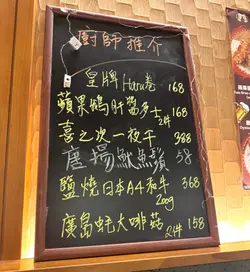 廚師推介
皇牌 Haru卷 168
蘋果鵝肝醬多士 2件 168
喜之次一夜干 388
唐揚魷魚鬚 58
鹽燒日本A4和牛 200g 368
廣島蚝大啡菇 2件 158